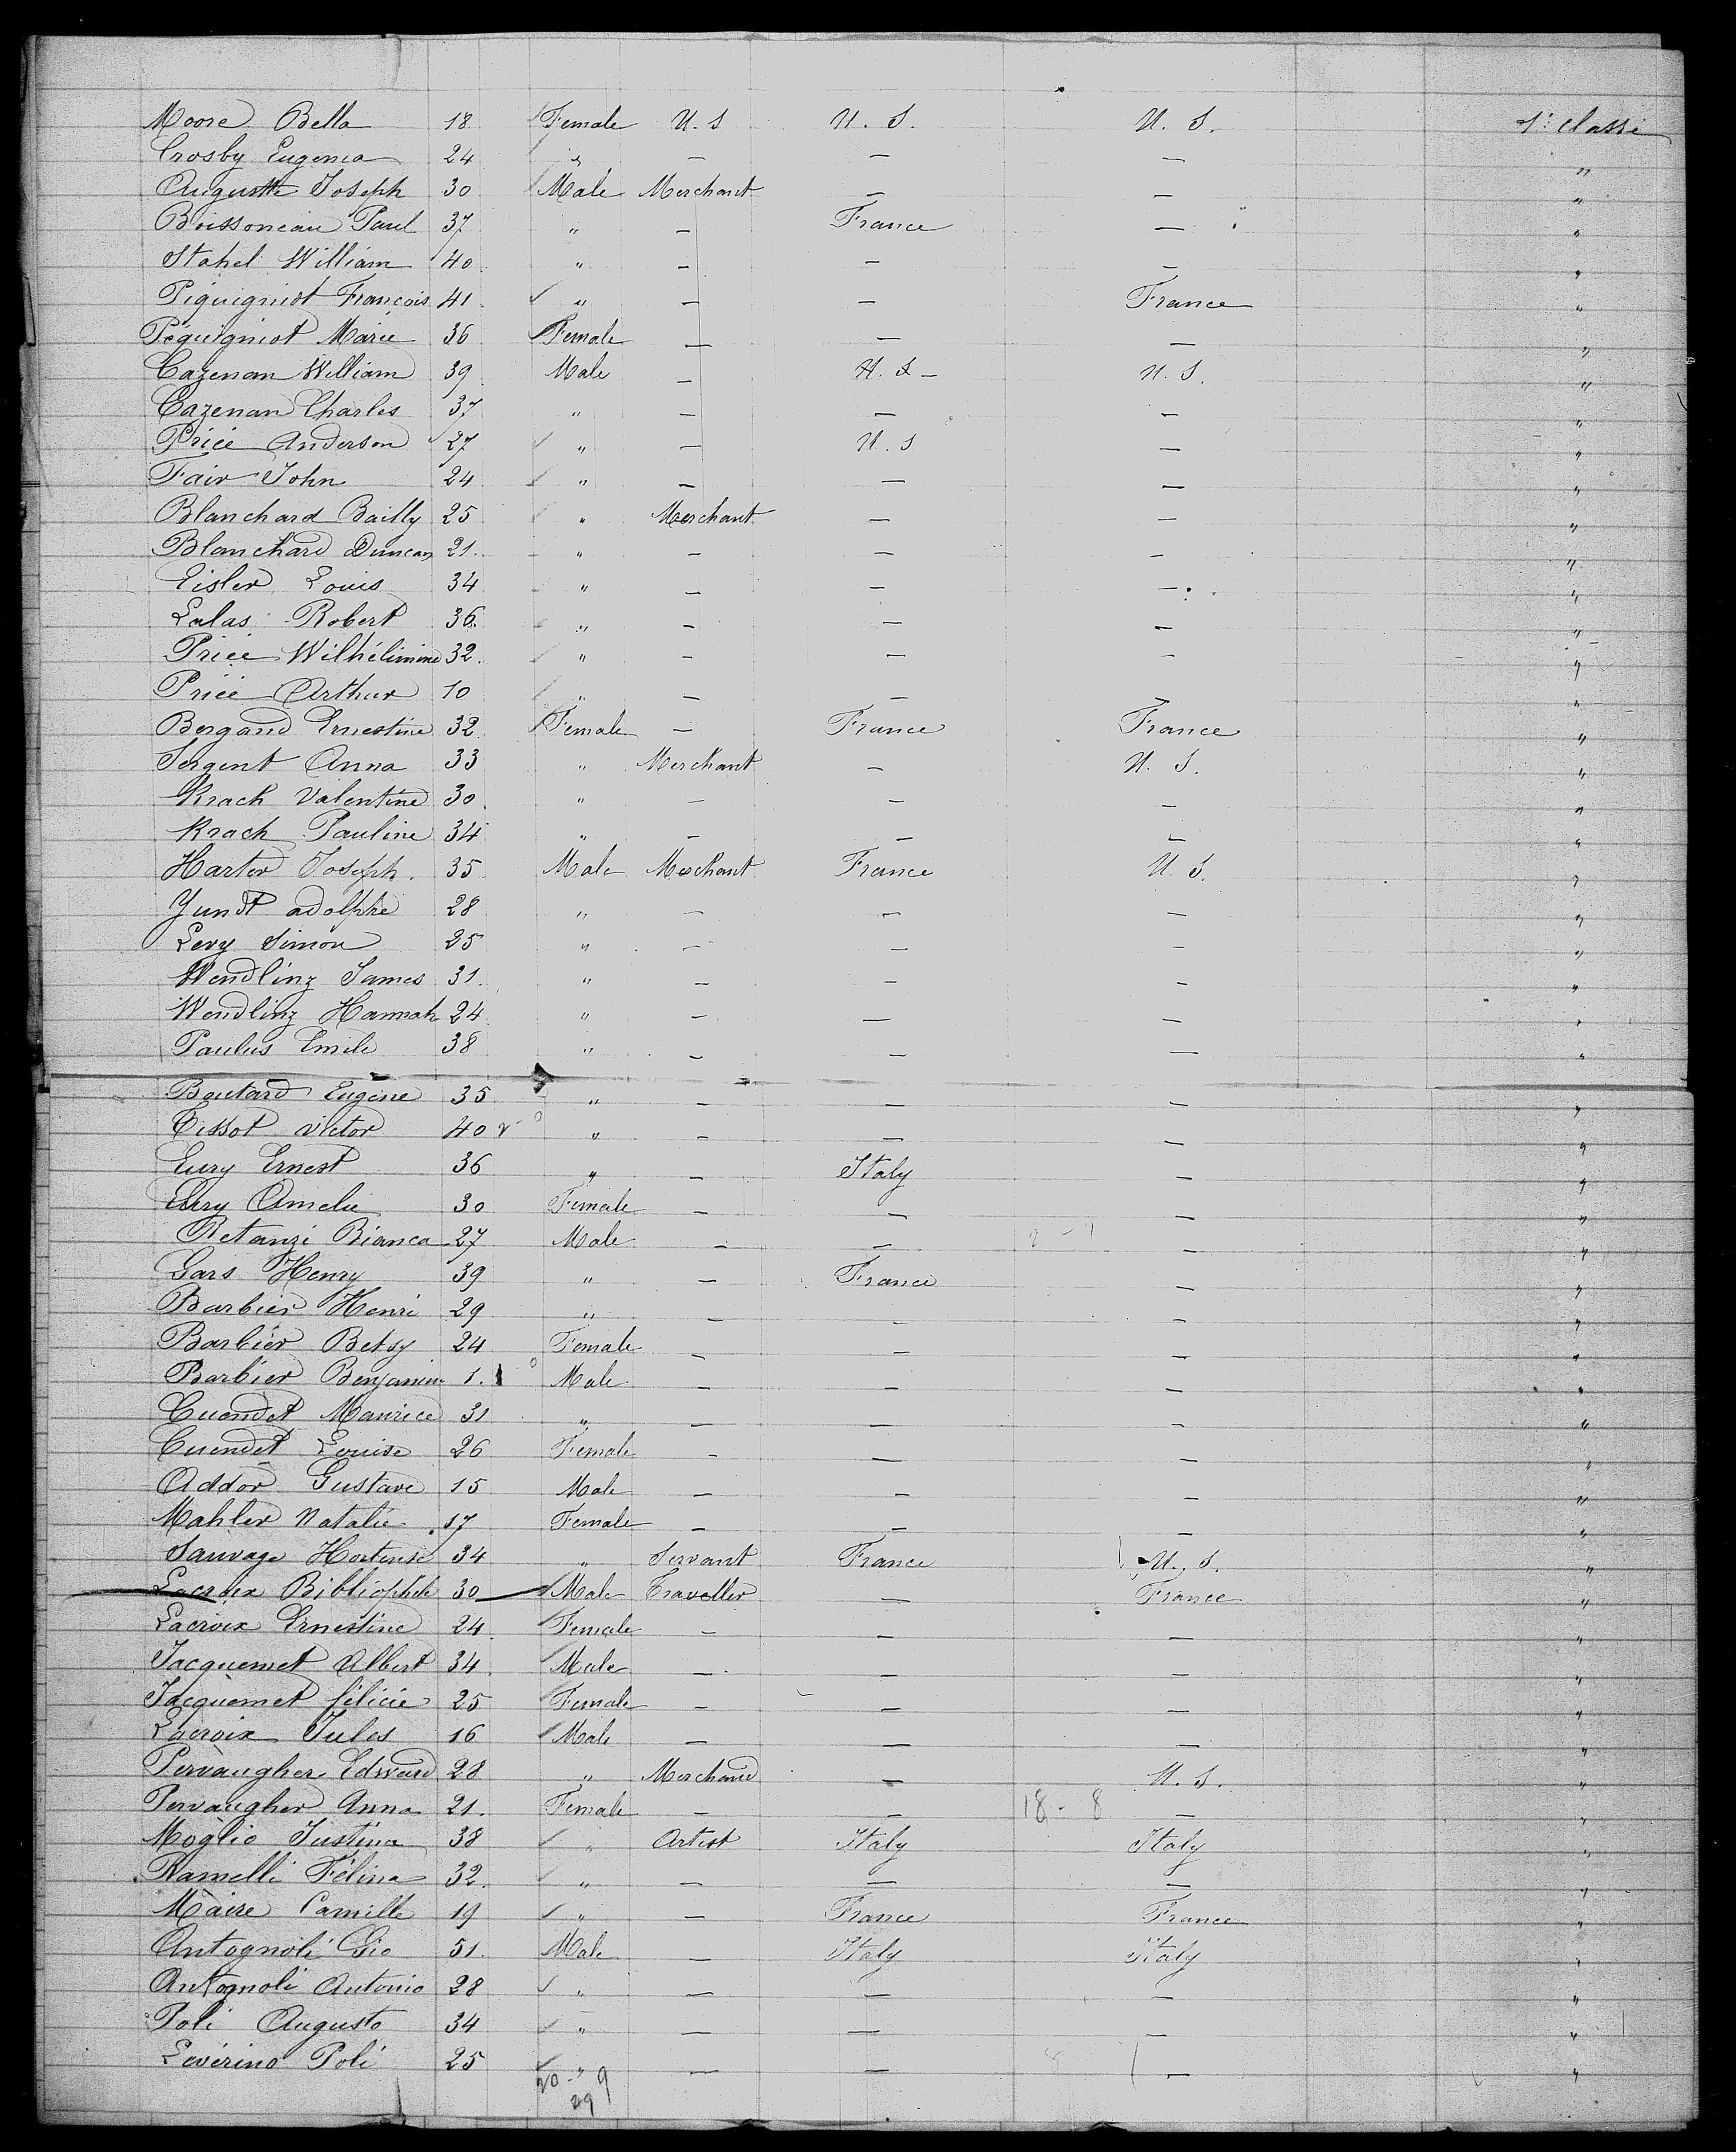 Moore Bella 18 Female U.S U.S. U.S. 1e classe
Crosby Eugenia 24 " — — — "
Auguste Joseph 30 Male Merchant — — "
Boissoneau Paul 37 " — France — "
Stahel William 40 " — — — "
Piquigniot François 41 " — — France "
Péquigniot Marie 36 Female — — — "
Cazenan William 39 Male — U.S — U.S. "
Cazenan Charles 37 " — — — "
Price Anderson 27 " — U.S — "
Fair John 24 " — — — "
Blanchard Bailly 25 " Merchant — — "
Blanchard Duncan 21. " — — — "
Eisler Louis 34 " — — — "
Lalas Robert 36. " — — — "
Price Wilhélimine 32. " — — — "
Price Arthur 10 " — — — "
Bergand Ernestine 32. Female — France France "
Sergent Anna 33 " Merchant — U.S. "
Krach Valentine 30. " — — — "
Krach Pauline 34 " — — — "
Harter Joseph. 35 Male Merchant France U S. "
Yundt adolphe 28 " — — — "
Levy Simon 25 " — — — "
Wendling James 31. " — — — "
Wendling Hannah 24 " — — — "
Paulus Emile 38 " — — — "
Boutard Eugène 35 " — — — "
Tissot victor 40 " — — — "
Eury Ernest 36 " — Italy — "
Eury Amelie 30 Female — — — "
Retanzi Bianca 27 Male — — — "
Gars Henry 39 " — France — "
Barbier Henri 29 " — — — "
Barbier Betsy 24 Female — — — "
Barbier Benjamin 1. Male — — — "
Cuendet Maurice 31 " — — — "
Cuendet Louise 26 Female — — — "
Addor Gustave 15 Male — — — "
Mahler Natalie 17 Female — — — "
Sauvage Hortense 34 " Servant France U.S. "
Lacroix Bibliophile 30 Male Traveller — France "
Lacroix Ernestine 24. Female — — — "
Jacquemet Albert 34. Male — — — "
Jacquemet félicie 25 Female — — — "
Lacroix Jules 16 Male — — — "
Pervangher Edward 28 " Merchand — U.S. "
Pervangher Anna 21. Female — — 18 - 8 — "
Moglio Justina 38 " Artist Italy Italy "
Ramelli Félina 32. " — — — "
Maire Camille 19 " — France France "
Antognoli Gio 51. Male — Italy Italy "
Antognoli Antonio 28 " — — — "
Poli Augusto 34 " — — — "
Severino Poli 25 " — — — "
20 - 9
29